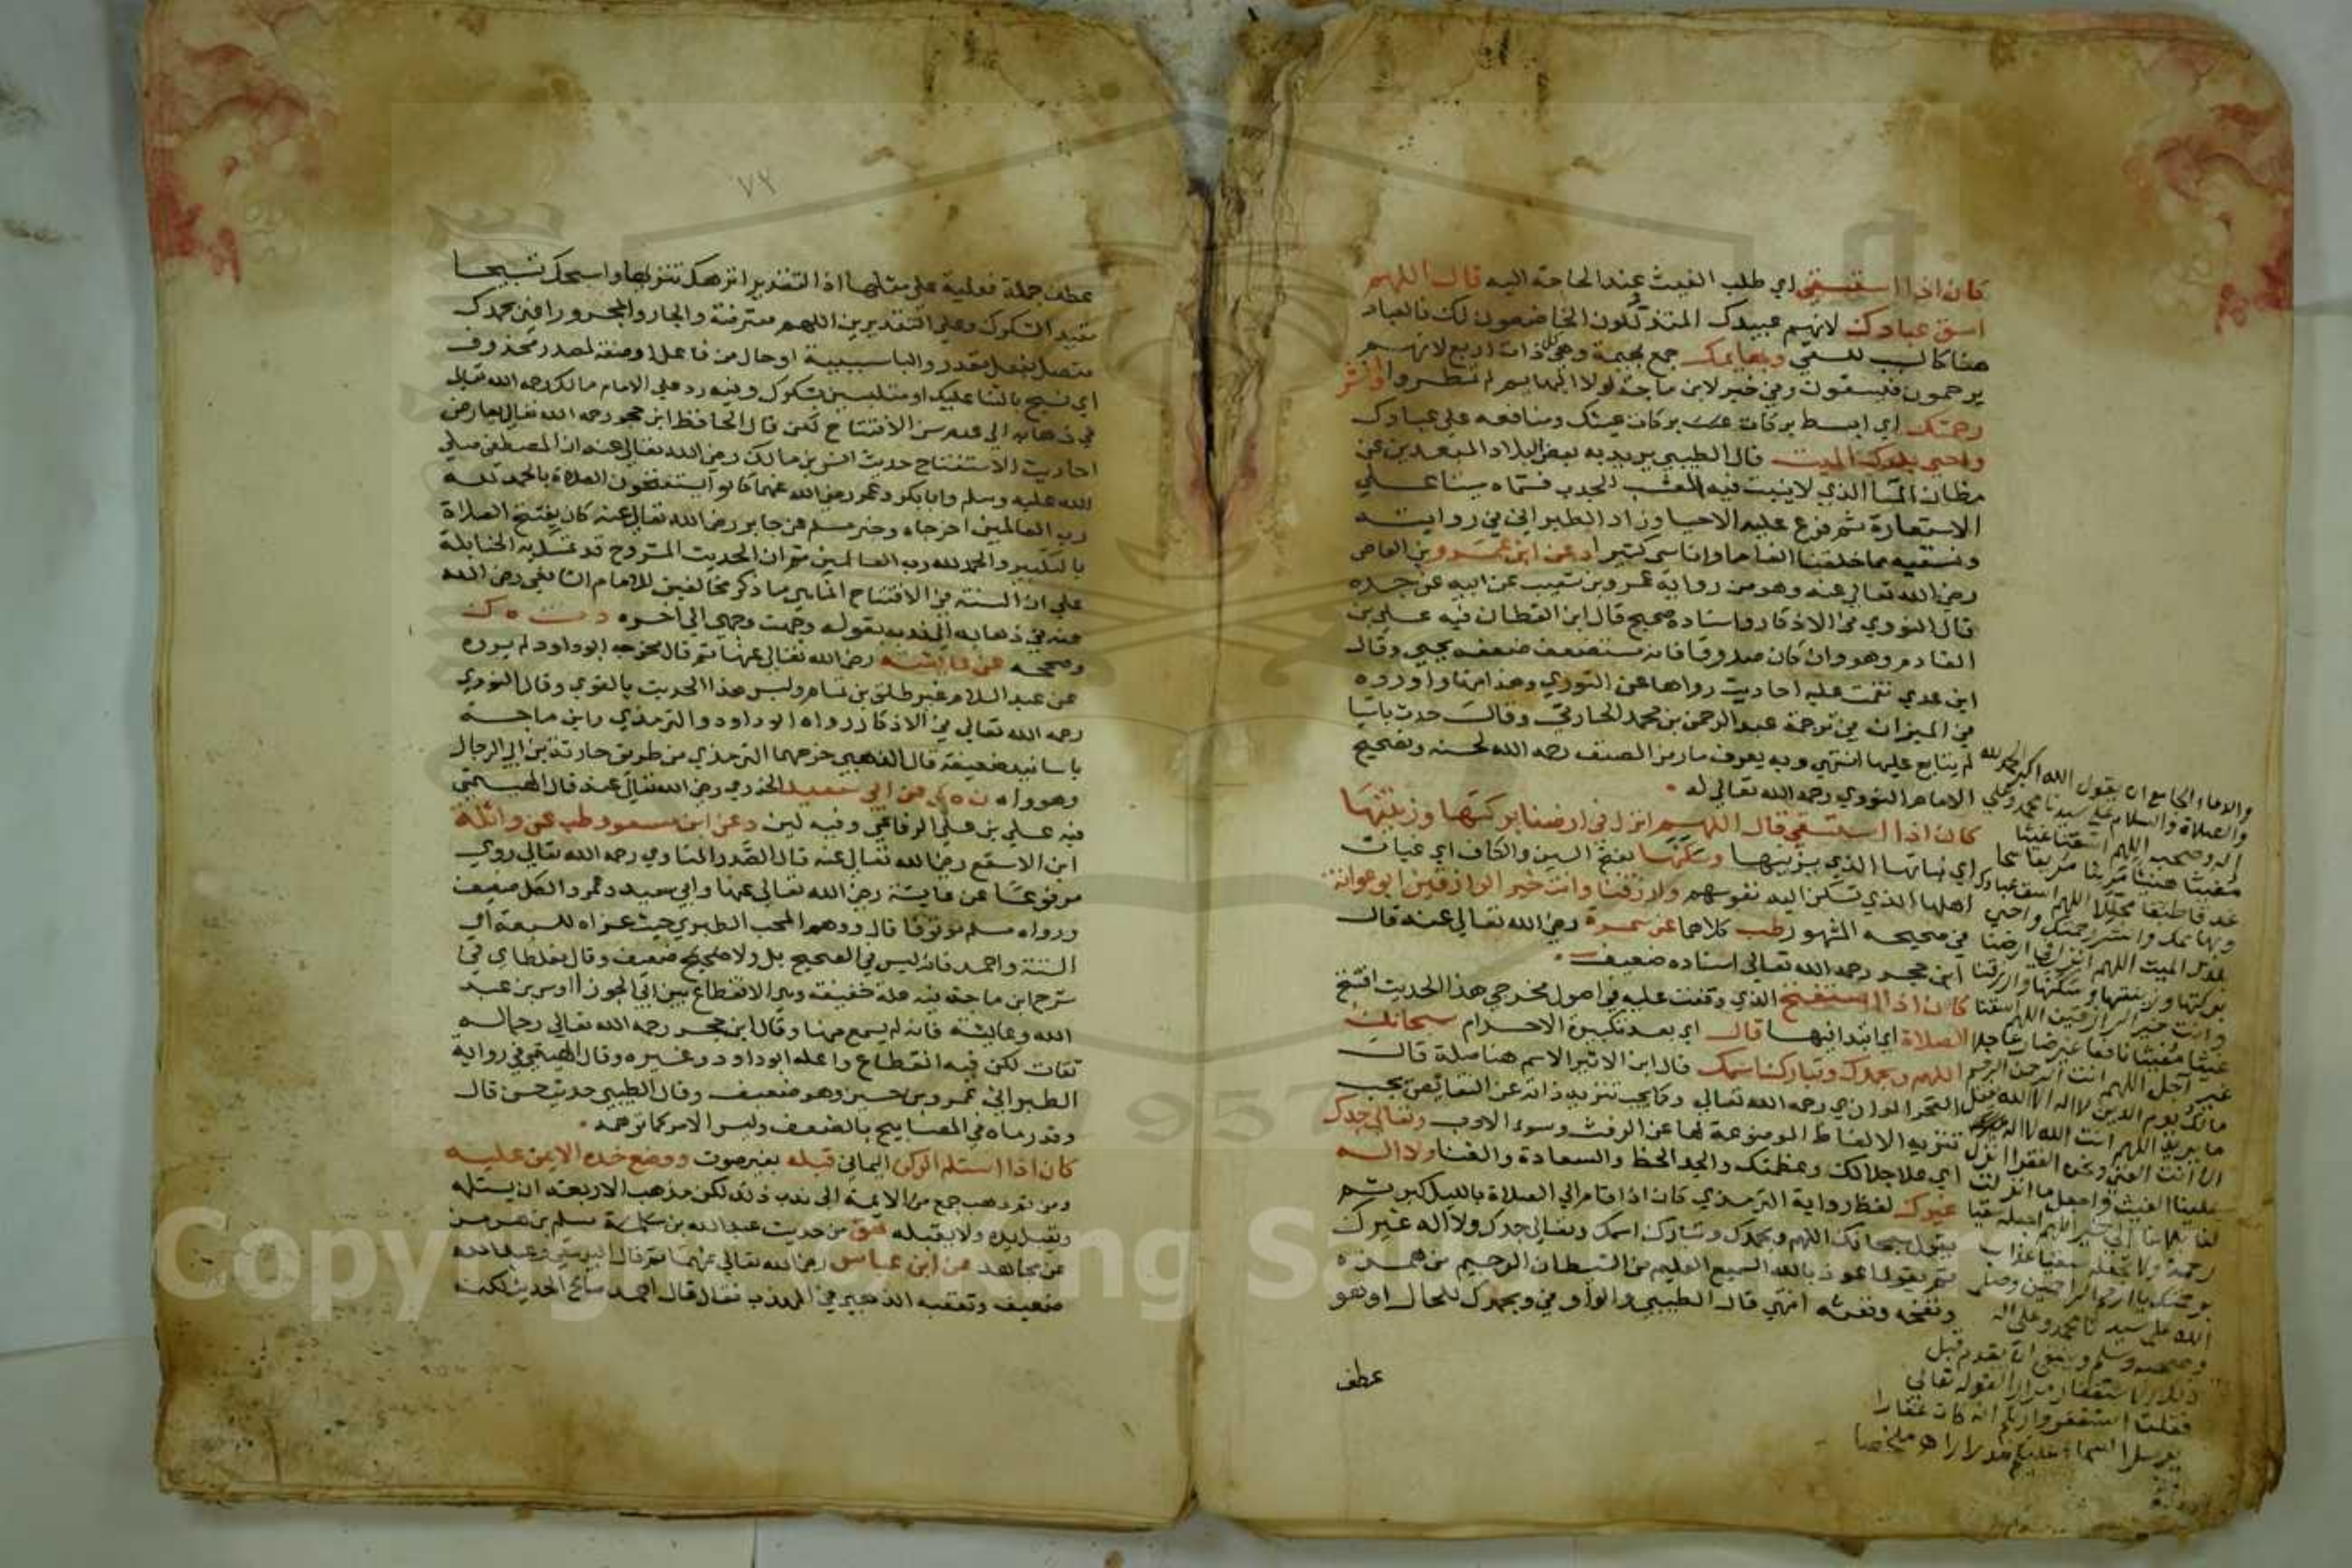 كان اذا استسقى اي طلب الغيث عند الحاجة اليه قال اللهم
اسق عبادك لانهم عبيدك المتذللون الخاضعون لك فالعباد
هنا كالسبب للسقي وبهايمك جمع بهيمة وهي كل ذات اربع لانهم
يرحمون فيسقون وفي خبر لابن ماجة لولا البهايم لم تمطروا وانشر
رحمتك اي ابسط بركات غيثك ومنافعه على عبادك
واحي بلدك الميت قال الطيبي يريد به بعض البلاد المبعدين عن
مظان الماء الذي لا ينبت فيه عشب للجدب فسماه ميتا على
الاستعارة ثم فرع عليه الاحيا وزاد الطبراني في روايته
ونسقيه مما خلقنا انعاما واناسي كثيرا د عن ابن عمرو بن العاص
رضي الله تعالى عنه وهو من رواية عمرو بن شعيب عن ابيه عن جده
قال النووي في الاذكار واسناده صحيح قال ابن القطان فيه علي بن
القادم وهو وان كان صدوقا فانه مستضعف ضعفه يحيى وقال
ابن عدي نقمت عليه احاديث رواها عن الثوري وهذا منها واورده
في الميزان في ترجمة عبد الرحمن بن محمد الحارثي وقال حدث باشيا
لم يتابع عليها انتهى وبه يعرف ما رمز المصنف رحمه الله لحسنه وتصحيح
الامام النووي رحمه الله تعالى له
كان اذا استسقى قال اللهم انزل في ارضنا بركتها وزينتها
اي نباتها الذي يزينها وسكنها بفتح السين والكاف اي غياث
اهلها الذي تسكن اليه نفوسهم وارزقنا وانت خير الرازقين ابو عوانة
في صحيحه المشهور طب كلاهما عن سمرة رضي الله تعالى عنه قال
ابن حجر رحمه الله تعالى اسناده ضعيف
كان اذا استفتح الذي وقفت عليه في اصول مخرجي هذا الحديث افتتح
الصلاة اي ابتدا فيها قال اي بعد تكبيرة الاحرام سبحانك
اللهم وبحمدك وتبارك اسمك قال ابن الاثير الاسم هنا صلة قال
الفخر الرازي رحمه الله تعالى وكما يجب تنزيه ذاته عن النقائص يجب
تنزيه الالفاظ الموضوعة لها عن الرفث وسوء الادب وتعالى جدك
اي علا جلالك وعظمتك والجد الحظ والسعادة والغنا ولا اله
غيرك لفظ رواية الترمذي كان اذا قام الى الصلاة بالليل كبر ثم
يقول سبحانك اللهم وبحمدك وتبارك اسمك وتعالى جدك ولا اله غيرك
ثم يقول اعوذ بالله السميع العليم من الشيطان الرجيم من همزه
ونفخه ونفثه انتهى قال الطيبي والواو في وبحمدك للحال او هو
عطف
والدعاء الجامع ان يقول الله اكبر الحمد لله
والصلاة والسلام على سيدنا محمد وعلى
اله وصحبه اللهم اسقنا غيثا
مغيثا هنيئا مريئا مريعا سحا
غدقا طبقا مجللا اللهم اسق عبادك
وبهائمك وانشر رحمتك واحي
بلدك الميت اللهم انزل في ارضنا
بركتها وزينتها وسكنها وارزقنا
وانت خير الرازقين اللهم اسقنا
غيثا مغيثا نافعا غير ضار عاجلا
غير آجل اللهم انت الرحمن الرحيم
مالك يوم الدين لا اله الا الله يفعل
ما يريد اللهم انت الله لا اله
الا انت الغني ونحن الفقرا انزل
علينا الغيث واجعل ما انزلت لنا
الله على سيدنا محمد وعلى اله
وصحبه وسلم وينبغي ان يقدم قبل
ذلك الاستغفار مرارا لقوله تعالى
فقلت استغفروا ربكم انه كان غفارا
يرسل السماء عليكم مدرارا اهـ ملخصا
٧٢
عطف جملة فعلية على مثلها اذ التقدير انزهك تنزيها واسبحك تسبيحا
مقيد الشكرك وعلى التقديرين اللهم معترضة والجار والمجرور اعني بحمدك
متصل بفعل مقدر والبا سببية او حال من فاعل او صفة لمصدر محذوف
اي نسبح بالثنا عليك او متلبسين بشكرك وفيه رد على الامام مالك رحمه الله تعالى
في ذهابه الى عدم سن الافتتاح لكن قال الحافظ ابن حجر رحمه الله تعالى يعارض
احاديث الاستفتاح حديث انس بن مالك رضي الله تعالى عنه ان المصطفى صلى
الله عليه وسلم وابا بكر وعمر رضي الله عنهما كانوا يستفتحون الصلاة بالحمد لله
رب العالمين اخرجاه وخبر مسلم عن جابر رضي الله تعالى عنه كان يفتتح الصلاة
بالتكبير والحمد لله رب العالمين ثم ان الحديث المشروح قد تمسك به الحنابلة
على ان السنة في الافتتاح انما هي ما ذكر مخالفين للامام الشافعي رضي الله
عنه في ذهابه الى ندبه بقوله وجهت وجهي الى اخره د ت ه ك
وصححه عن عايشة رضي الله تعالى عنها ثم قال مخرجه ابو داود لم يروه
عن عبد السلام غير طلق بن غنام وليس هذا الحديث بالقوي وقال النووي
رحمه الله تعالى في الاذكار رواه ابو داود والترمذي وابن ماجة
باسانيد ضعيفة قال الذهبي خرجهما الترمذي من طريق حارثة بن ابي الرجال
وهو واه ن ه ك عن ابي سعيد الخدري رضي الله تعالى عنه قال الهيثمي
فيه علي بن علي الرفاعي وفيه لين وعن ابن مسعود طب عن واثلة
ابن الاسقع رضي الله تعالى عنه قال الصدر المناوي رحمه الله تعالى روي
مرفوعا عن عايشة رضي الله تعالى عنها وابي سعيد وعمر والكل ضعيف
ورواه مسلم موقوفا قال ووهم المحب الطبري حيث عزاه للسبعة اي
الستة واحمد فانه ليس في الصحيح بل ولا صحيح ضعيف وقال مغلطاي في
شرح ابن ماجة فيه علة خفيفة وهي الانقطاع بين ابي الجوزا اوس بن عبد
الله وعايشة فانه لم يسمع منها وقال ابن حجر رحمه الله تعالى رجاله
ثقات لكن فيه انقطاع واعله ابو داود وغيره وقال الهيثمي في رواية
الطبراني عمرو بن حسين وهو ضعيف وقال الطيبي حديث حسن قال
وقد رماه في المصابيح بالضعف وليس الامر كما توهمه
كان اذا استلم الركن اليماني قبله بغير صوت ووضع خده الايمن عليه
ومن ثم ذهب جمع من الايمة الى ندب ذلك لكن مذهب الاربعة ان يستلمه
ويقبل يده ولا يقبله هق من حديث عبد الله بن مسلم بن هرمز
عن مجاهد عن ابن عباس رضي الله تعالى عنهما ثم قال البيهقي وعبد الله
ضعيف وتعقبه الذهبي في المهذب فقال قال احمد صالح الحديث لكنه